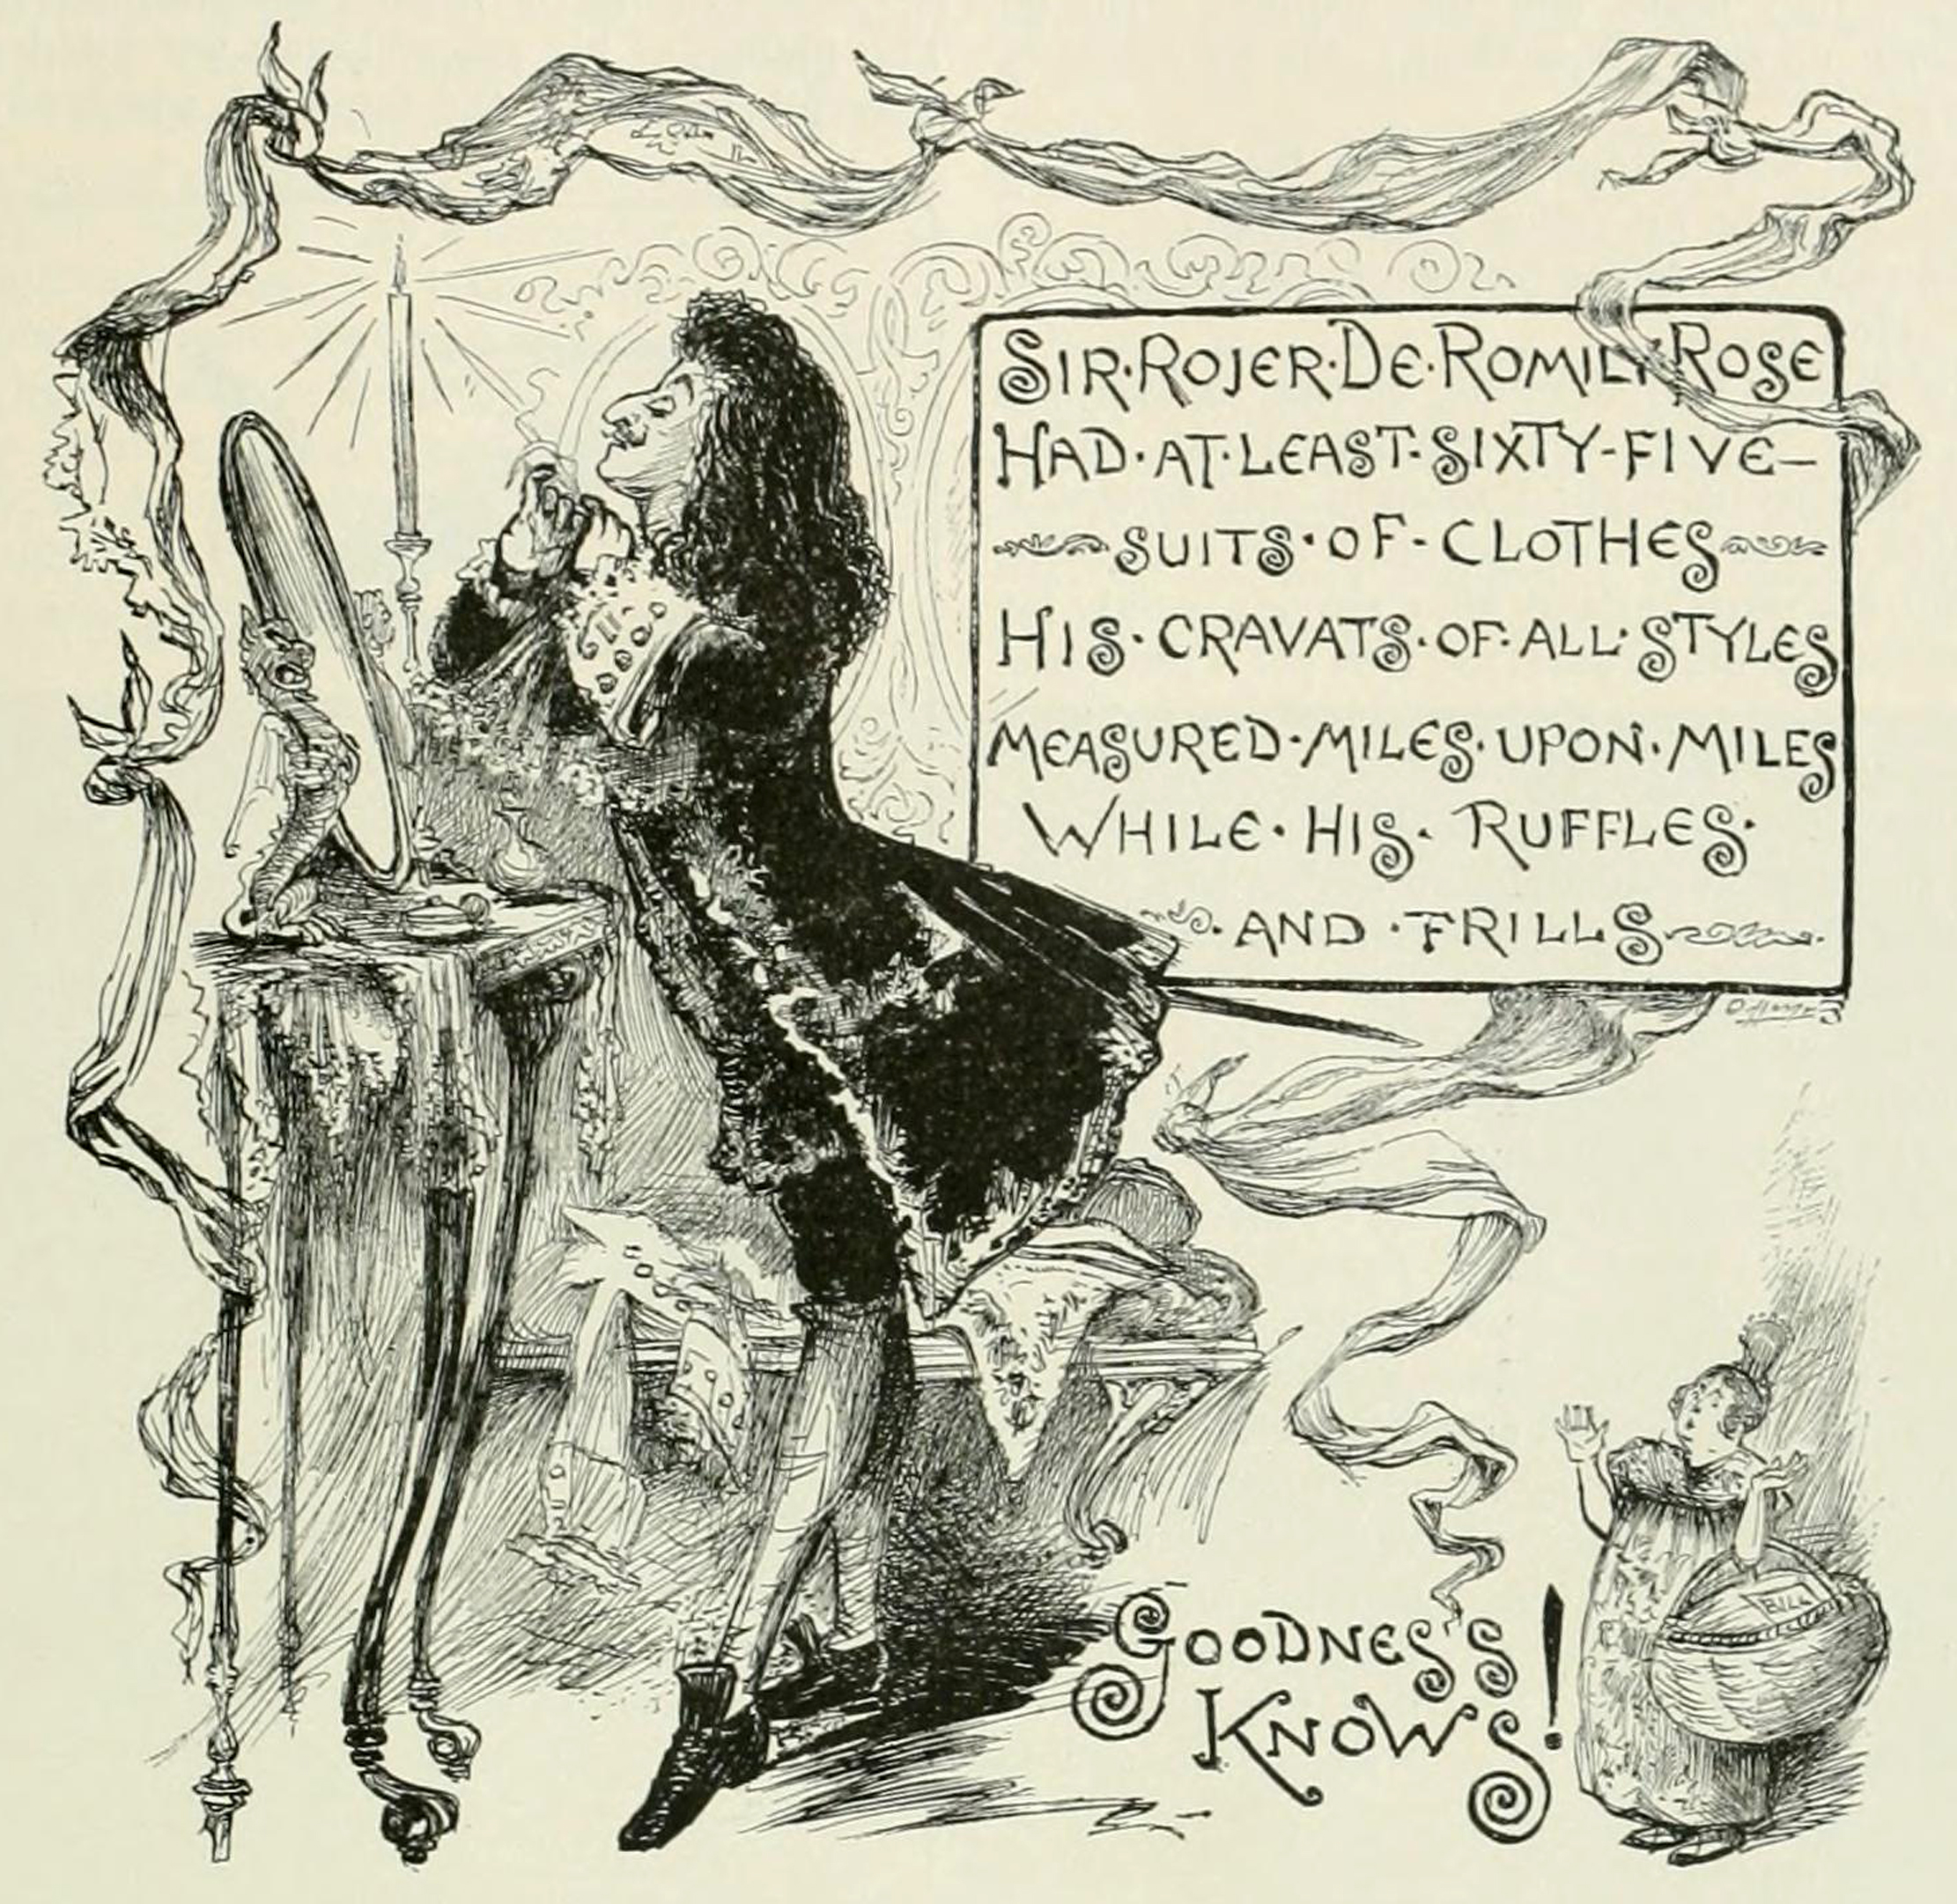 SIR·ROJER·DE·ROMILY·ROSE
HAD·AT·LEAST·SIXTY-FIVE-
SUITS·OF·CLOTHES
HIS·CRAVATS·OF·ALL·STYLES
MEASURED·MILES·UPON·MILES
WHILE·HIS·RUFFLES·
·AND·FRILLS
GOODNESS
KNOWS!
BILL